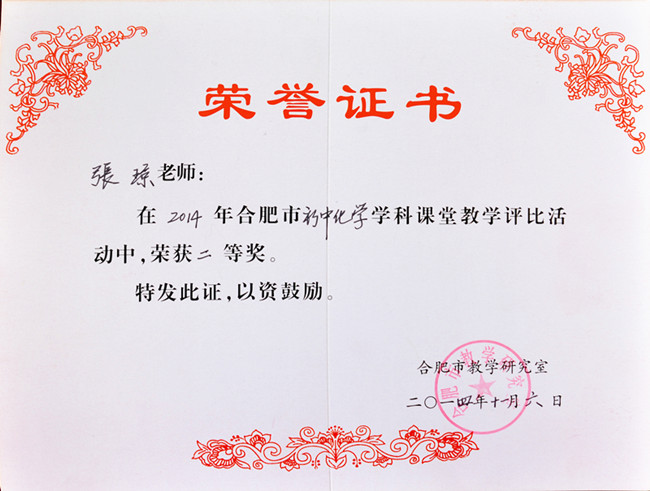 荣誉证书
張琼老师：
在2014年合肥市初中化学学科课堂教学评比活
动中，荣获二等奖。
特发此证，以资鼓励。
合肥市教学研究室
二〇一四年十一月六日
合肥市教学研究室